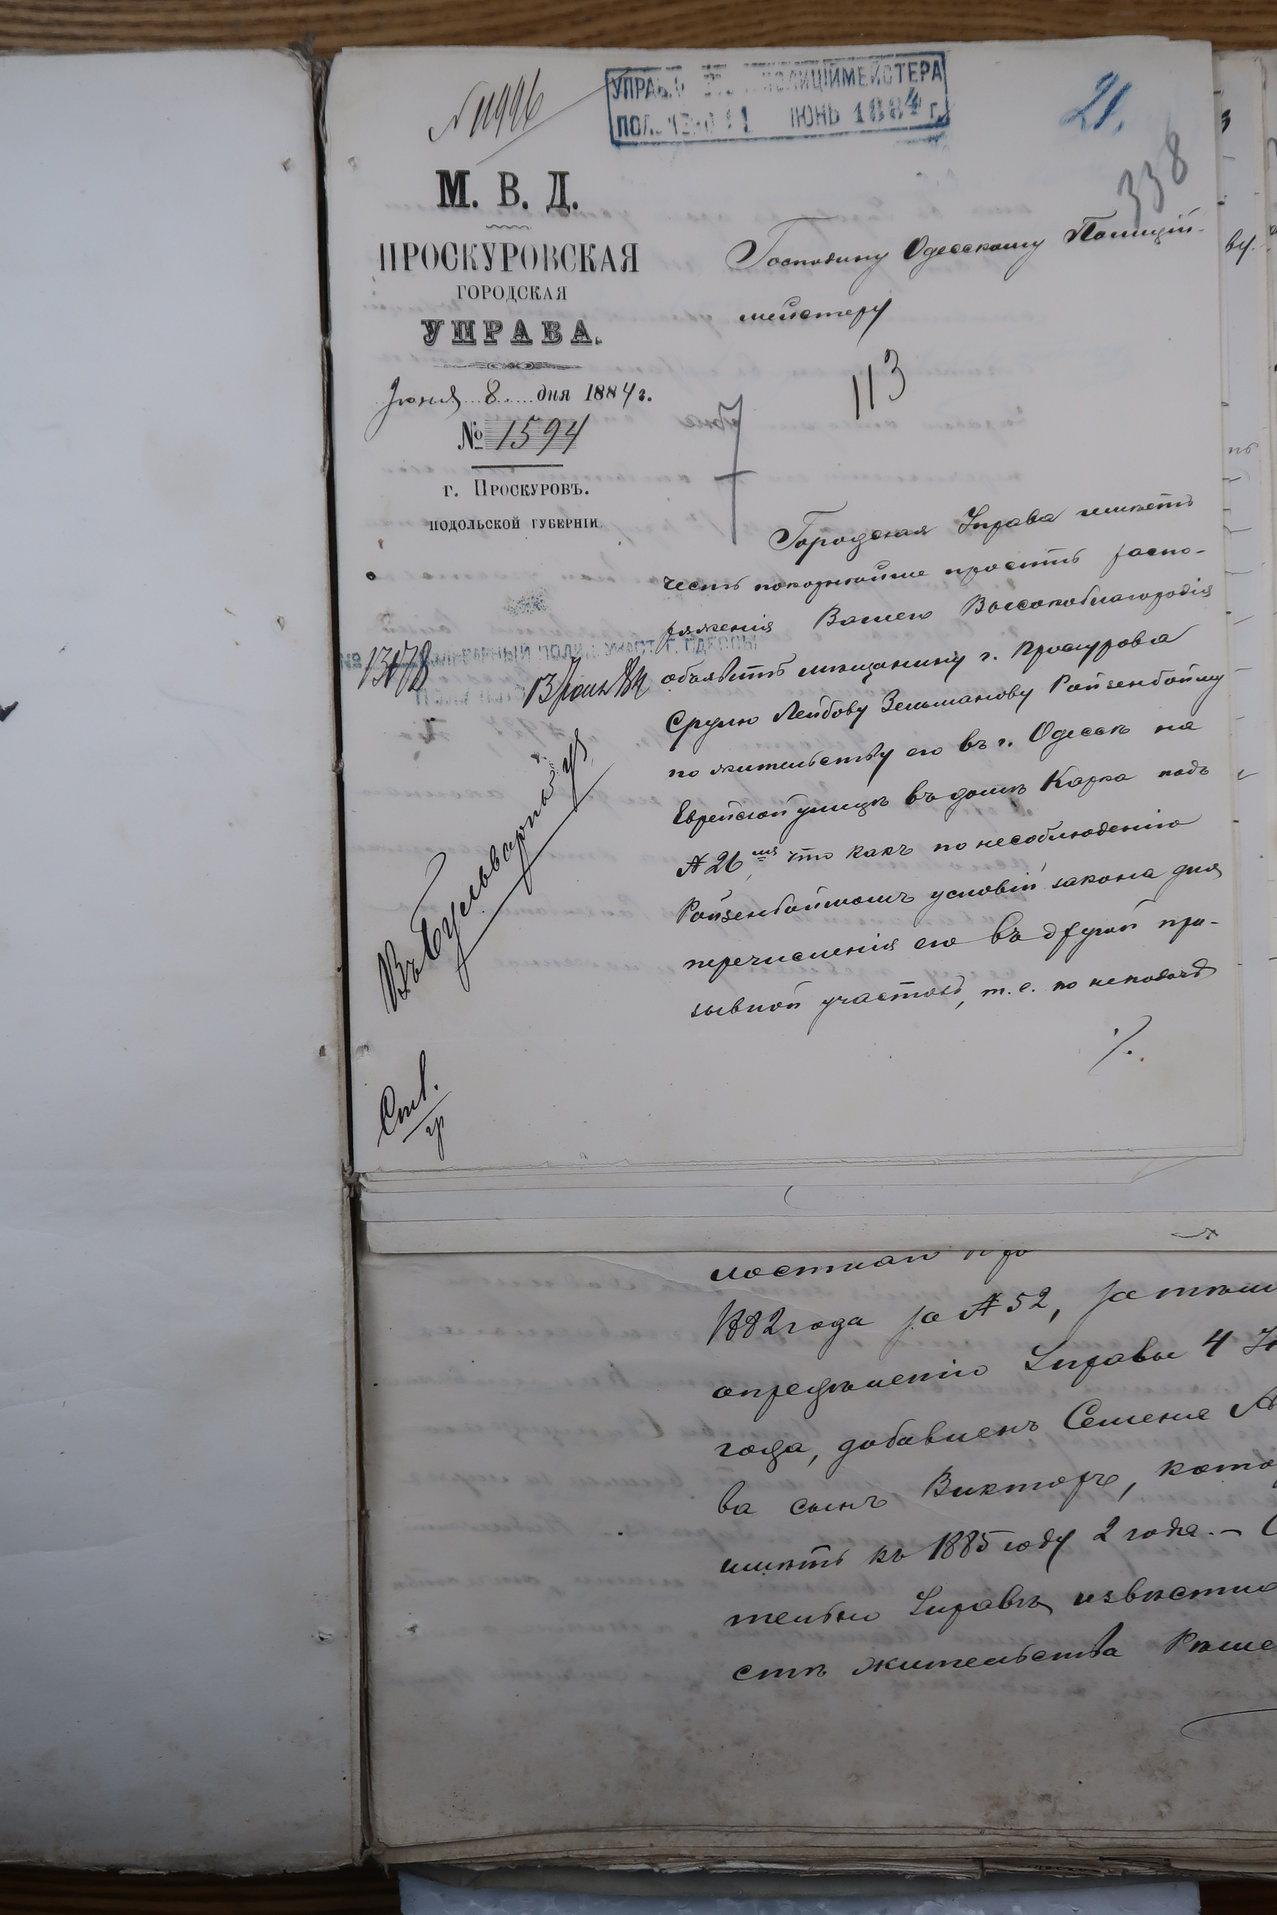 № 11996
УПРАВ ПОЛИЦІЙМЕЙСТЕРА
ПОЛУЧЕНО 11 ІЮНЬ 1884 г.
21.
338
М. В. Д.
ПРОСКУРОВСКАЯ
ГОРОДСКАЯ
УПРАВА.
Іюня 8 дня 1884 г.
№ 1594
г. Проскуровъ.
ПОДОЛЬСКОЙ ГУБЕРНІИ
Господину Одесскому Полицій-
мейстеру
113
7
Городская Управа имѣетъ
честь покорнѣйше просить распо-
ряженія Вашего Высокоблагородія
объявить мѣщанину г. Проскурова
Срулю Лейбову Зельманову Ройзенбойму
по жительству его въ г. Одессѣ на
Еврейской улицѣ въ домѣ Карпа подъ
№ 26, что какъ по несоблюденію
Ройзенбоймомъ условій закона для
перечисленія его въ другой при-
зывной участокъ, т. е. по неподачѣ
./.
13178
13 Іюня 84
Въ Бульварный уч.
мостнаго
1882 года за № 52, затѣмъ
опредѣленію Управы 4
года, добавленъ Семенъ
ва сынъ Викторъ,
имѣетъ къ 1885 году 2 года. —
тельно Управѣ извѣстно
стѣ жительства